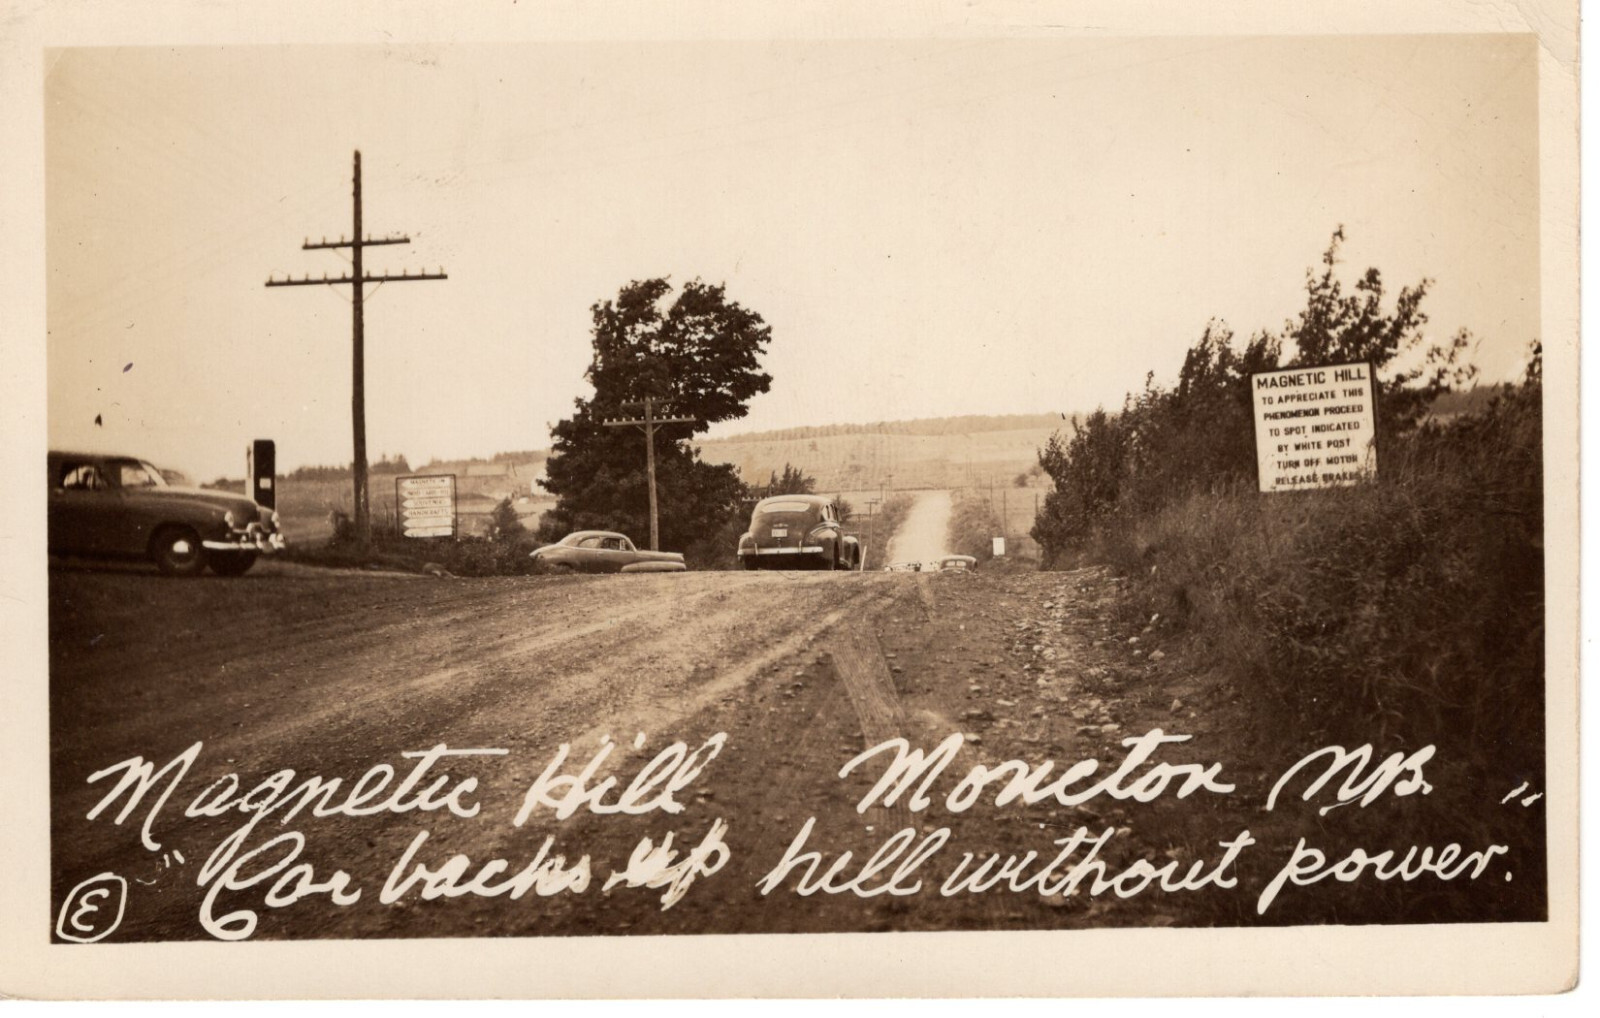 MAGNETIC HILL
TO APPRECIATE THIS
PHENOMENON PROCEED
TO SPOT INDICATED
BY WHITE POST
TURN OFF MOTOR
RELEASE BRAKES
Magnetic Hill Moncton NB.
"Car backs up hill without power."
E